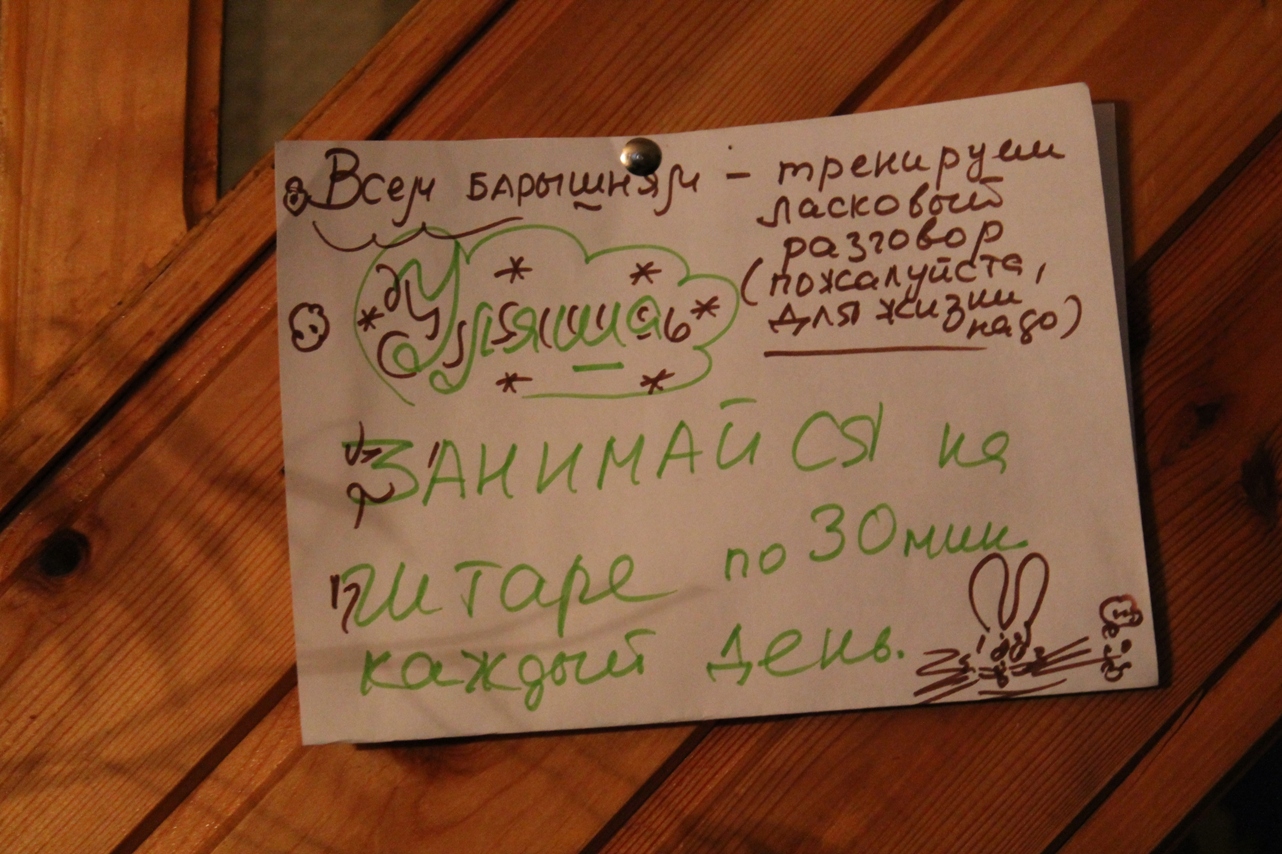 Всем БАРЫШНЯМ – тренируем
ласковый
разговор
(пожалуйста,
для жизни
надо)
Уляша
ЗАНИМАЙСЯ на
гитаре по 30 мин.
каждый день.